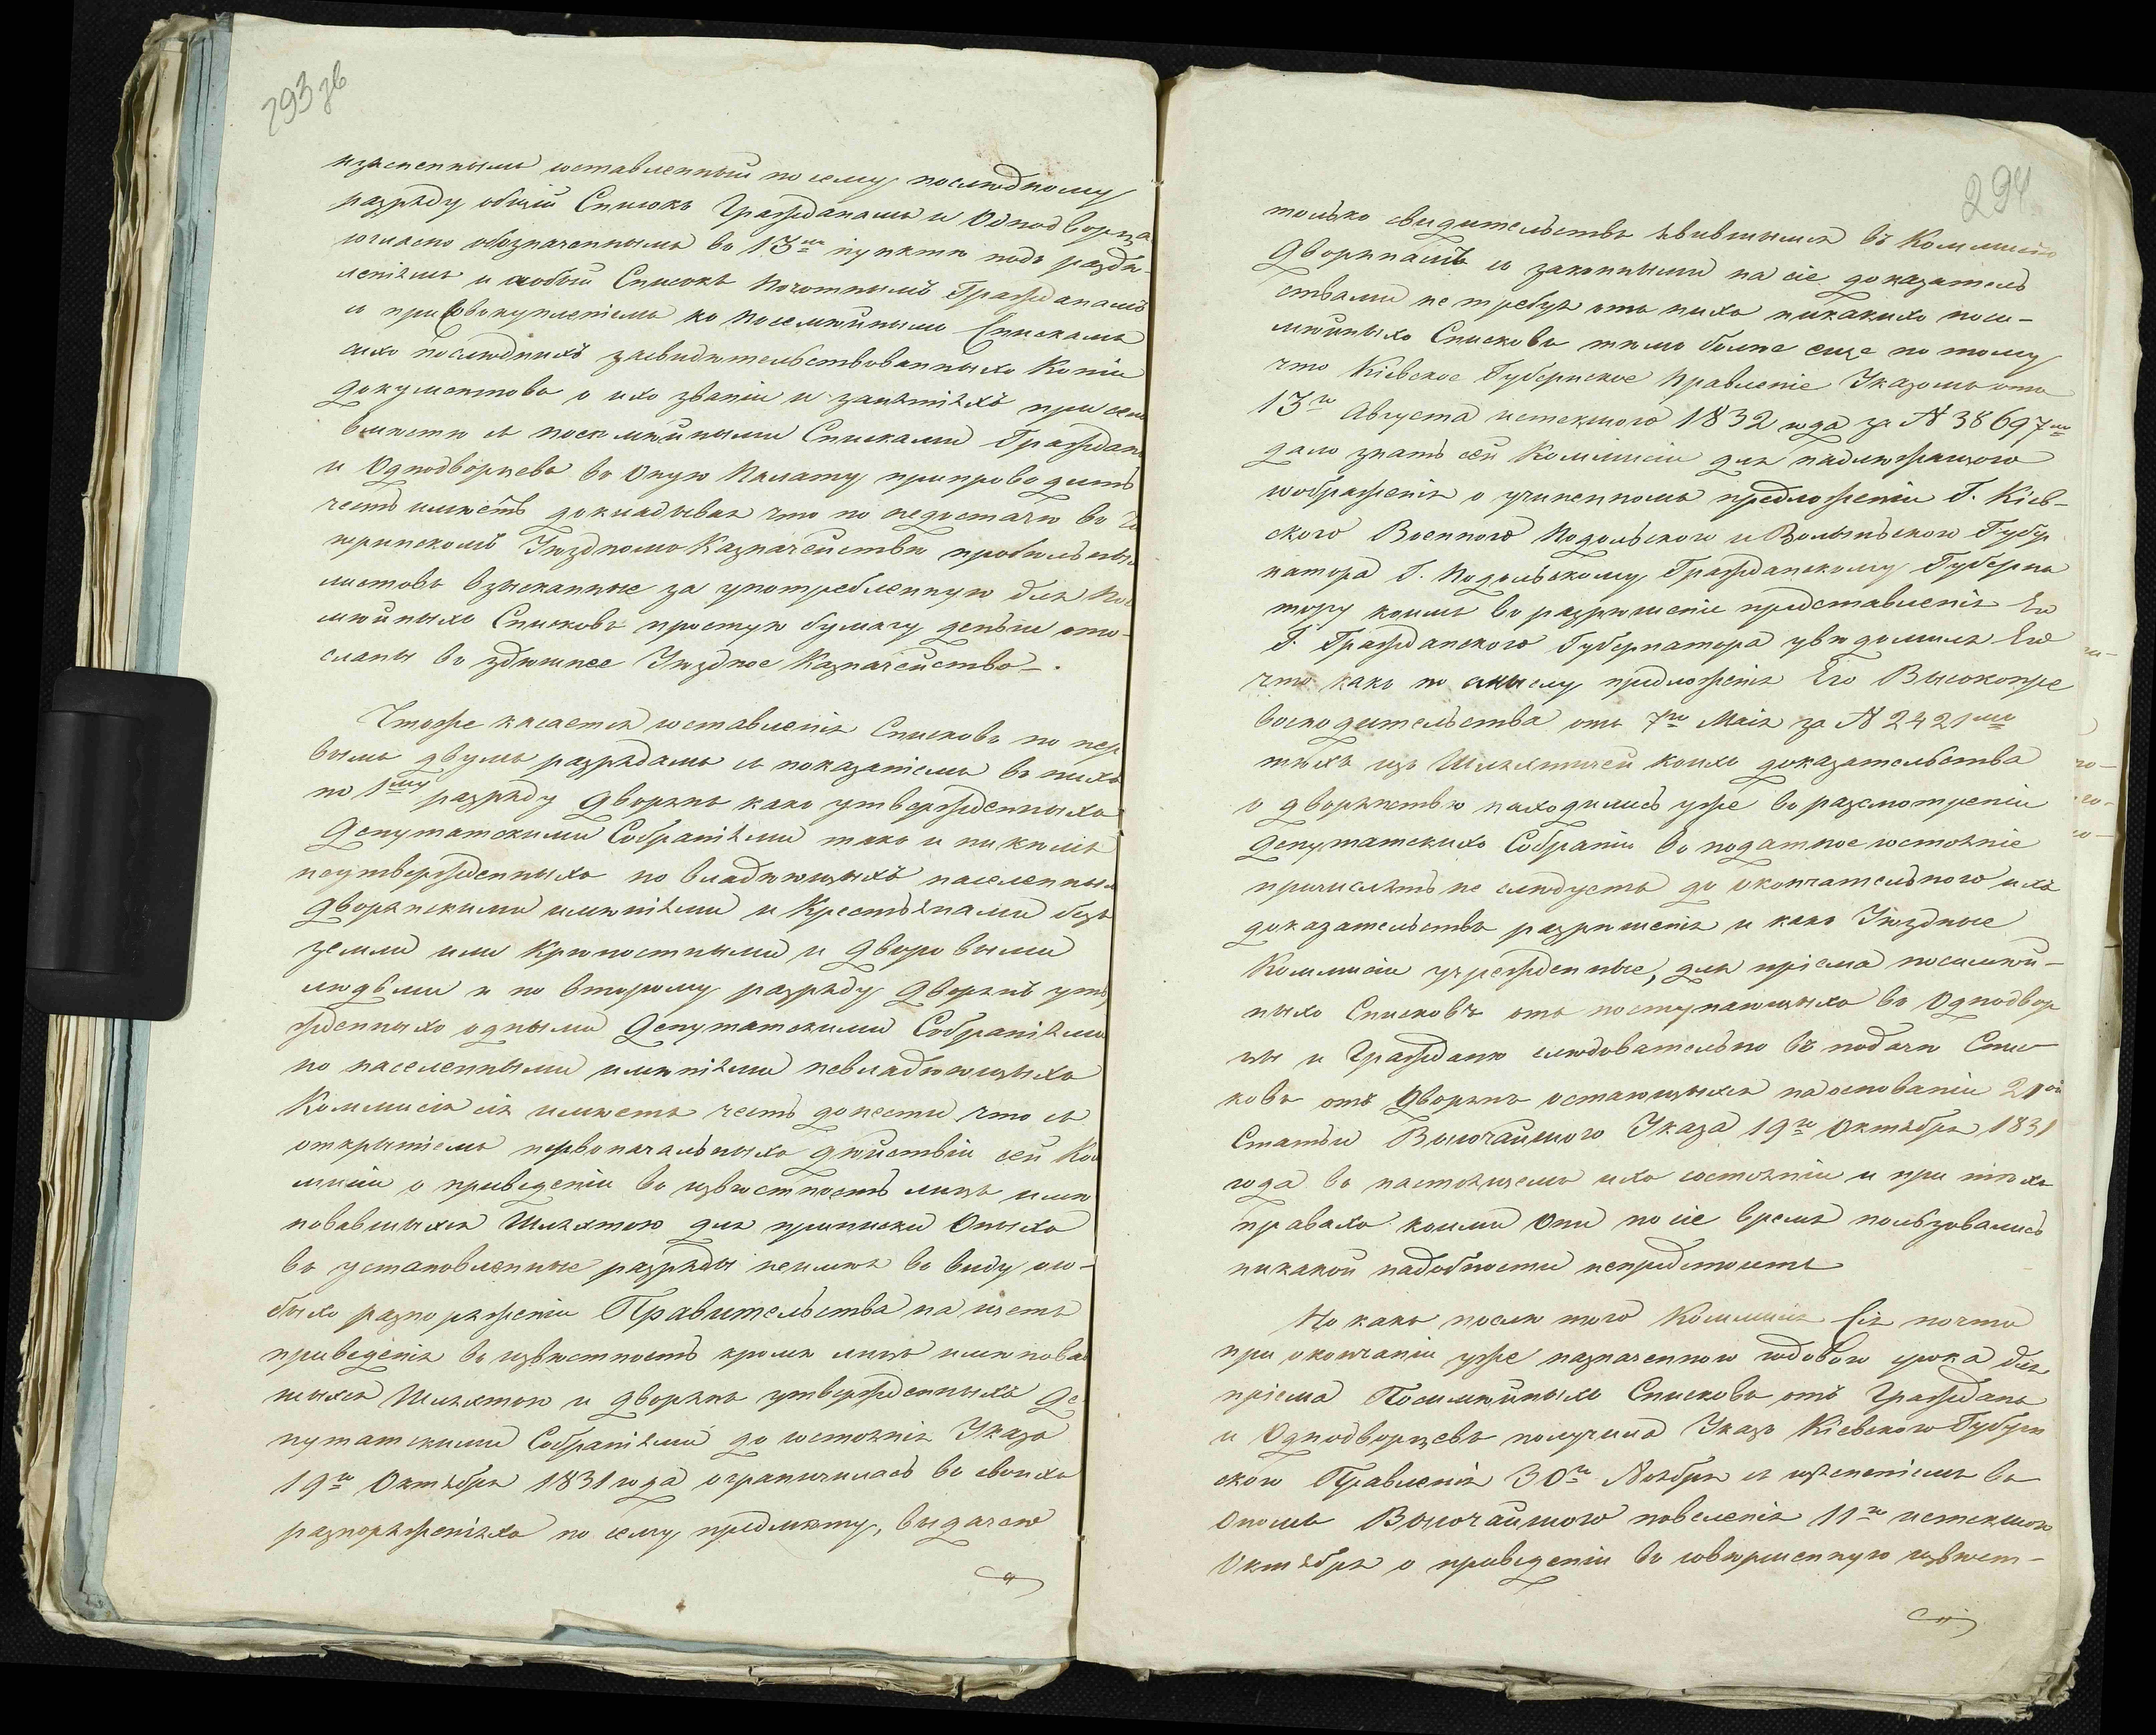 293 зв
изъясненнымъ составленный по сему послѣдному
разряду общій Списокъ Гражданамъ и Однодворца
согласно обозначеннымъ въ 13мъ пунктѣ подъ раздѣ-
леніямъ и особый Списокъ Почотнымъ Гражданамъ
съ присовокупленіемъ къ Посемѣйнымъ Спискамъ
сихъ послѣднихъ засвидѣтельствованныхъ Копій
документовъ о ихъ званіи и занятіяхъ при семъ
вмѣстѣ съ посемѣйными Списками Гражданъ
и Однодворцевъ въ Оную Палату припроводить
честь имѣетъ докладывая что по недостачѣ въ
Уѣздномъ Казначействѣ пробѣльныхъ
листовъ взысканные за употребленную для Посе
мѣйныхъ Списковъ простую бумагу деньги ото-
сланы въ здѣшнее Уѣздное Казначейство.
Чтоже касается составленія Списковъ по пер
вымъ двумъ разрядамъ съ показаніемъ въ нихъ
по 1му разряду Дворянъ какъ утвержденныхъ
Депутатскими Собраніями такъ и никѣмъ
неутвержденныхъ но владѣющихъ населенными
дворянскими имѣніями и Крестьянами безъ
земли или крѣпостными и дворовыми
людьми и по второму разряду Дворянъ утвер
жденныхъ одными Депутатскими Собраніями
но населенными имѣніями невладѣющихъ
Коммисія сія имѣетъ честь донести что съ
открытіемъ первоначальныхъ дѣйствій сей Ком
мисіи о приведеніи въ извѣстность лицъ имѣ
новавшихся Шляхтою для приписки Оныхъ
въ установленные разряды неимѣя въ виду осо-
быхъ разпоряженій Правительства на щетъ
приведенія въ извѣстность кромѣ лицъ имѣновав
шихся Шляхтою и дворянъ утвержденныхъ Де
путатскими Собраніями до состоянія Указа
19го Октября 1831 года ограничилась въ своихъ
разпоряженіяхъ по сему предмѣту, выдачею
294
только свидѣтельствъ явившимся въ Коммисію
Дворянамъ съ законными на сіе доказатель
ствами не требуя отъ нихъ никакихъ посе-
мѣйныхъ Списковъ тѣмъ болѣе еще по тому
что Кіевское Губернское Правленіе Указомъ отъ
13го Августа истекшаго 1832 года за N 38697мъ
дало знать сей Коммисіи для надлежащаго
соображенія о учиненномъ предложеніи Г. Кіев-
скаго Военнаго Подольскаго и Волынскаго Губер
натора Г. Подольскому Гражданскому Губерна
тору коимъ въ разрѣшеніе представленія Его
Г. Гражданскаго Губернатора увѣдомилъ Его
что какъ по смыслу предложенія Его Высокопре
восходительства отъ 7го Маія за N 2421мъ
тѣхъ изъ Шляхтичей коихъ доказательства
о дворянствѣ находились уже въ разсмотреніи
Депутатскихъ Собраній въ податное состояніе
причислять не слѣдуетъ до окончательнаго ихъ
доказательствъ разрѣшенія и какъ Уѣздные
Коммисіи учрежденные, для пріема посемѣй-
ныхъ Списковъ отъ поступающихъ въ Однодвор
цы и Граждане слѣдовательно въ подачѣ Спис
ковъ отъ Дворянъ остающихся на основаніи 21ой
Статьи Высочайшаго Указа 19го Октября 1831
года въ настоящемъ ихъ состояніи и при тѣхъ
правахъ коими они по сіе время пользовались
никакой надобности непредстоитъ
Но какъ послѣ того Коммисія Сія почти
при окончаніи уже назначеннаго годоваго срока для
пріема Посемѣйныхъ Списковъ отъ Гражданъ
и Однодворцевъ получила Указъ Кіевскаго Губерн
скаго Правленія 30го Ноября съ изъясненіемъ въ
Ономъ Высочайшаго повеленія 11го истекшаго
Октября о приведеніи въ совершенную извѣст-